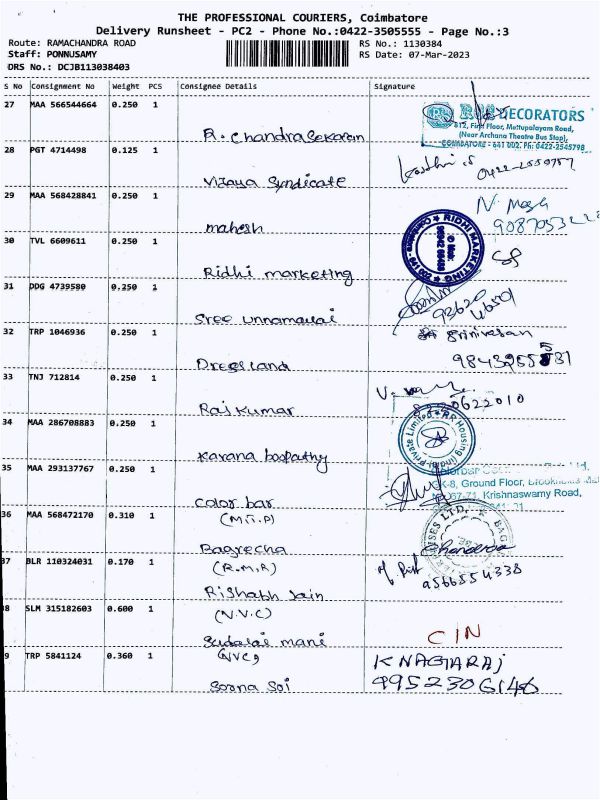 THE PROFESSIONAL COURIERS, Coimbatore
Delivery Runsheet - PC2 - Phone No.:0422-3505555 - Page No.:3
Route: RAMACHANDRA ROAD
Staff: PONNUSAMY
DRS No.: DCJB113038403
RS No.: 1130384
RS Date: 07-Mar-2023
S No Consignment No Weight PCS Consignee Details Signature
27 MAA 566544664 0.250 1
R. Chandrasekaran
DECORATORS
812, First Floor, Mettupalayam Road,
(Near Archana Theatre Bus Stop),
COIMBATORE - 641 002. Ph: 0422-2545798
28 PGT 4714498 0.125 1
Vijaya Syndicate
29 MAA 568428841 0.250 1
mahesh
30 TVL 6609611 0.250 1
Ridhi marketing
RIDHI MARKETING
31 DDG 4739580 0.250 1
Sree unnamalai
92620
32 TRP 1046936 0.250 1
Dressland
Srinivasan
33 TNJ 712814 0.250 1
Rajkumar
34 MAA 286708883 0.250 1
Karana boopathy
35 MAA 293137767 0.250 1
Color bar
(M.T.P)
Ground Floor,
Krishnaswamy Road,
36 MAA 568472170 0.310 1
Bagrecha
(R.M.R)
37 BLR 110324031 0.170 1
Rishabh Jain
(N.V.C)
8 SLM 315182603 0.600 1
Sudalai mani
(NVC)
CIN
9 TRP 5841124 0.360 1
Soona Soi
K NAGARAJ
9952306146